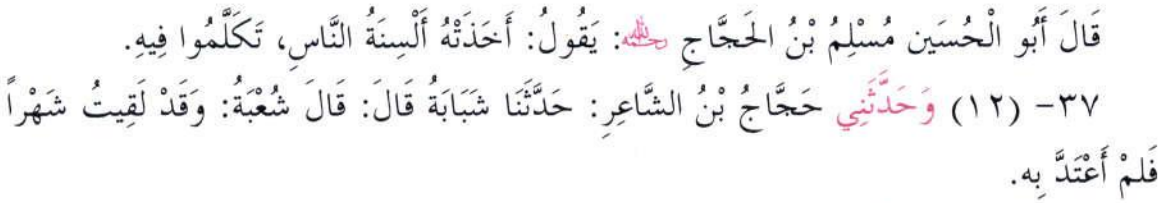 قَالَ أَبُو الْحُسَيْن مُسْلِمُ بْنُ الحَجَّاجِ رحمه الله: يَقُولُ: أَخَذَتْهُ أَلْسِنَةُ النَّاسِ، تَكَلَّمُوا فِيهِ.
٣٧- (١٢) وَحَدَّثَنِي حَجَّاجُ بْنُ الشَّاعِرِ: حَدَّثَنَا شَبَابَةُ قَالَ: قَالَ شُعْبَةُ: وَقَدْ لَقِيتُ شَهْراً
فَلمْ أَعْتَدَّ بِه.